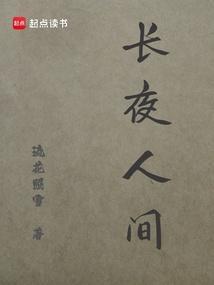 起点读书
长夜人间
流花照雪 著